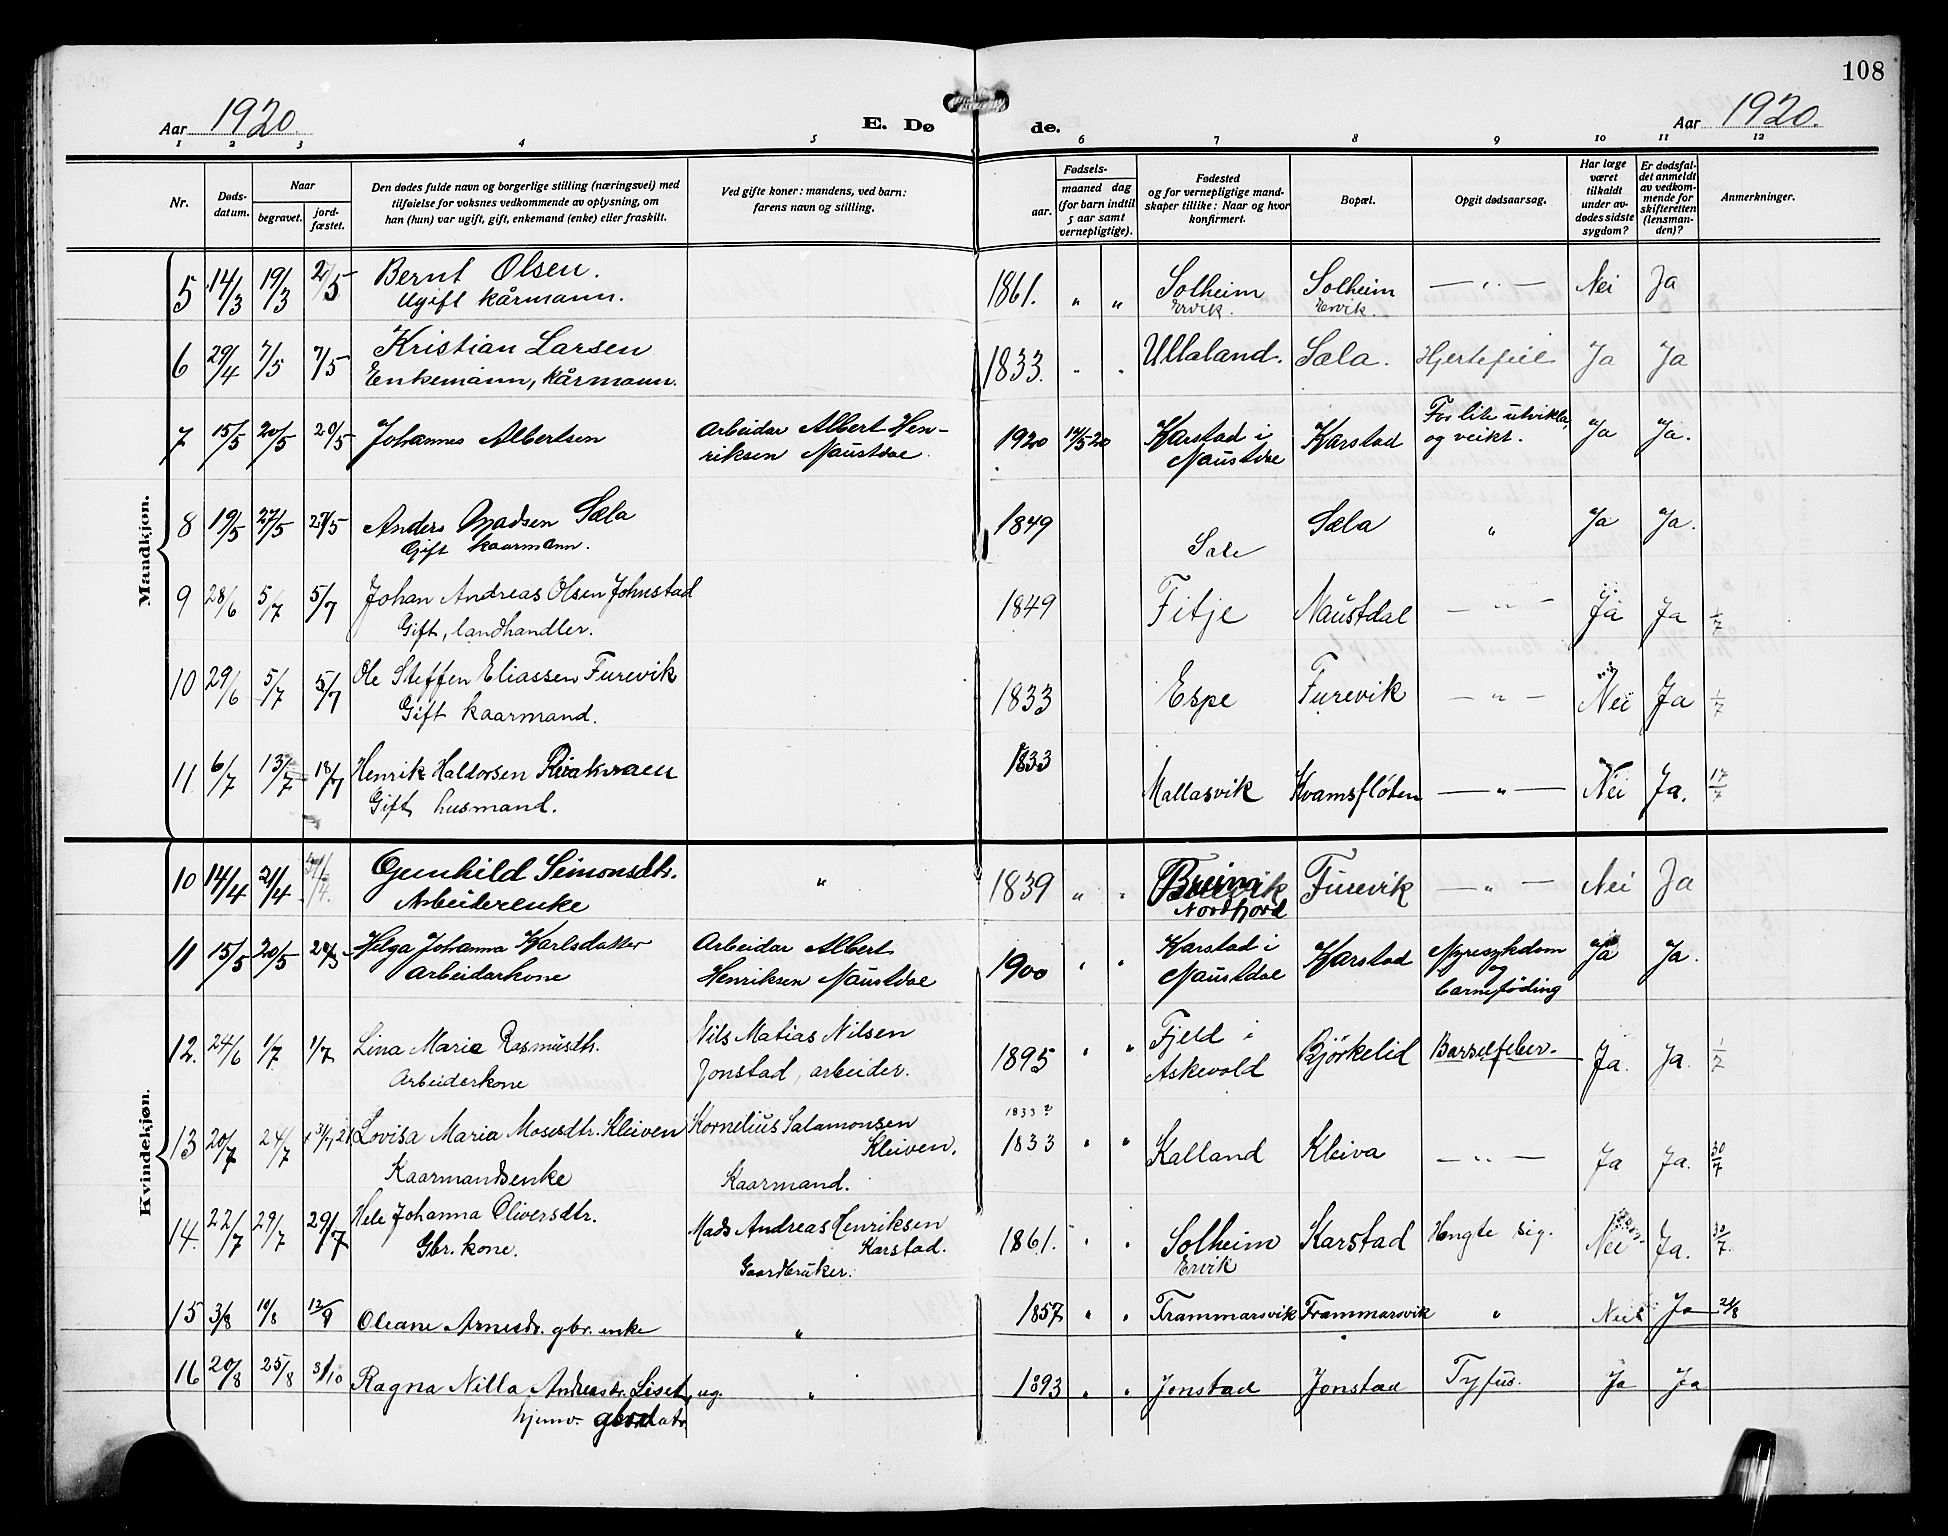 108
Aar 1920. E. Døde. Aar 1920.
1 2 3 4 5 6 7 8 9 10 11 12
Nr.
Døds-
datum.
Naar
begravet.
jord-
fæstet.
Den dødes fulde navn og borgerlige stilling (næringsvei) med
tilføielse for voksnes vedkommende av oplysning, om
han (hun) var ugift, gift, enkemand (enke) eller fraskilt.
Ved gifte koner: mandens, ved barn:
farens navn og stilling.
Fødsels-
aar. maaned dag
(for barn indtil
5 aar samt
vernepligtige).
Fødested
og for vernepligtige mand-
skaper tillike: Naar og hvor
konfirmert.
Bopæl.
Opgit dødsaarsag.
Har læge
været
tilkaldt
under av-
dødes sidste
sygdom?
Er dødsfal-
det anmeldt
av vedkom-
mende for
skifteretten
(lensman-
den)?
Anmerkninger.
Mandkjøn.
5 14/3 19/3 2/5 Bernt Olsen. 1861. " " Solheim Solheim — " — Nei Ja
Ugift kårmann. Ervik. Ervik.
6 29/4 7/5 7/5 Kristian Larsen 1833. " " Ullaland. Sæla. Hjertefeil Ja Ja
Enkemann, kårmann.
7 15/5 20/5 20/5 Johannes Albertsen Arbeidar Albert Hen- 1920 14/5 20 Karstad i Karstad For lite utvikla, Ja Ja.
riksen Naustdal. Naustdal og veikt.
8 19/5 27/5 27/5 Anders Madsen Sæla 1849 Sæla " Ja Ja.
Gift kaarmann. Sale
9 28/6 5/7 5/7 Johan Andreas Olsen Johnstad 1849 Fitje Naustdal — " — Ja Ja 1/7
Gift, landhandler.
10 29/6 5/7 5/7 Ole Steffen Eliassen Furevik 1833 Espe Furevik — " — Nei Ja 1/7
Gift kaarmand.
11 6/7 13/7 18/7 Henrik Haldorsen 1833 Mallasvik Kvamsfløten — " — Nei Ja. 17/7
Gift husmand.
Kvindekjøn.
10 14/4 21/4 Gunhild Simonsdtr. " 1839 " " Furevik — " — Nei Ja
Arbeiderenke Nordfjord
11 15/5 20/5 Helga Johanna Karlsdatter Arbeidar Albert 1900 " " Karstad i Karstad Nyresykdom Ja Ja.
Arbeidarkone Henriksen Naustdal Naustdal og
barneføding
12. 24/6 1/7 1/7 Lina Maria Rasmusdtr. Nils Matias Nilsen 1895 " " Fjeld i Bjørkelid Barselfeber. Ja. Ja. 1/7
Arbeiderkone Jonstad, arbeider. Askevold
1833 ?
13 20/7 24/7 Lovisa Maria Mosesdtr. Kleiven Kornelius Salamonsen 1833 " " Kalland Kleiva — " — Ja Ja. 30/7
Kleiven.
Kaarmandsenke Kaarmand.
14. 22/7 29/7 29/7 Hele Johanna Oliversdtr. Mads Andreas Henriksen 1861. " " Solheim Karstad Hengte sig. Nei Ja. 30/7.
Gbr. kone. Karstad. Ervik
Gaardbruker.
15 3/8 10/8 12/9 Oleane Arnesdr. gbr. enke " 1857 " " Frammarsvik Frammarsvik " Nei Ja 24/8
16 20/8 25/8 3/10 Ragna Nilla Andreasdr. Liset, ug. " 1893 " " Jonstad Jonstad Tyfus. Ja Ja
hjemv.